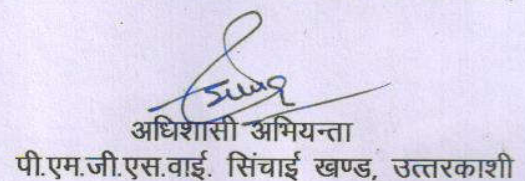 अधिशासी अभियन्ता
पी.एम.जी.एस.वाई. सिंचाई खण्ड, उत्तरकाशी